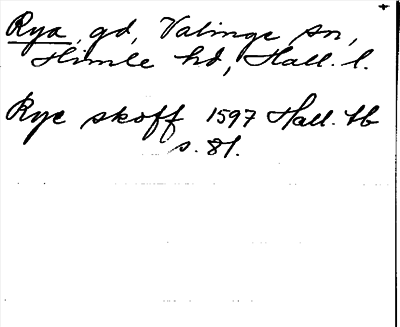 Rya, gd, Valinge sn,
Himle hd, Hall. l.
Rye skoff 1597 Hall. tb
s. 81.